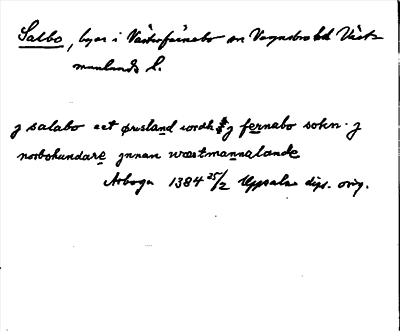 Salbo, byar i Västerfärnebo sn Vagnsbro hd Väst-
manlands l.
j salabo eet øresland iordh j fernabo sokn j
norbohundare jnnan wæstmannalande
Arboga 1384 25/2 Uppsala dipl. orig.